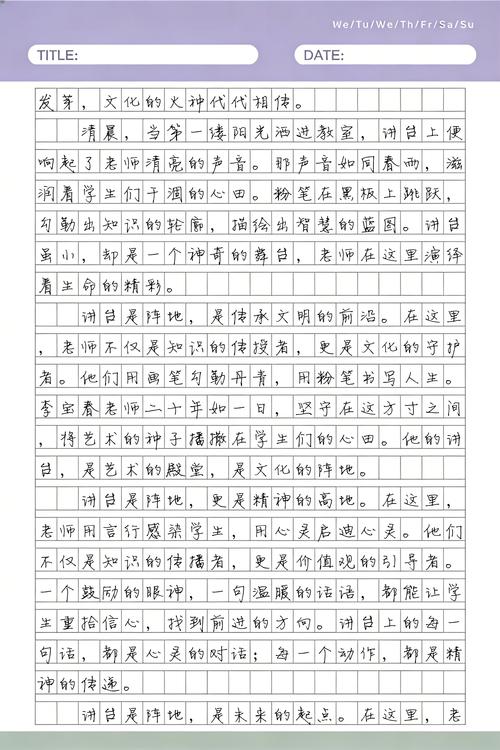 We/Tu/We/Th/Fr/Sa/Su
TITLE:
DATE:
发芽，文化的火神代代相传。
清晨，当第一缕阳光洒进教室，讲台上便
响起了老师清亮的声音。那声音如同春雨，滋
润着学生们干涸的心田。粉笔在黑板上跳跃，
勾勒出知识的轮廓，描绘出智慧的蓝图。讲台
虽小，却是一个神奇的舞台，老师在这里演绎
着生命的精彩。
讲台是阵地，是传承文明的前沿。在这里
，老师不仅是知识的传授者，更是文化的守护
者。他们用画笔勾勒丹青，用粉笔书写人生。
李宝春老师二十年如一日，坚守在这方寸之间
，将艺术的种子播撒在学生们的心田。他的讲
台，是艺术的殿堂，是文化的阵地。
讲台是阵地，更是精神的高地。在这里，
老师用言行感染学生，用心灵启迪心灵。他们
不仅是知识的传播者，更是价值观的引导者。
一个鼓励的眼神，一句温暖的话语，都能让学
生重拾信心，找到前进的方向。讲台上的每一
句话，都是心灵的对话；每一个动作，都是精
神的传递。
讲台是阵地，是未来的起点。在这里，老